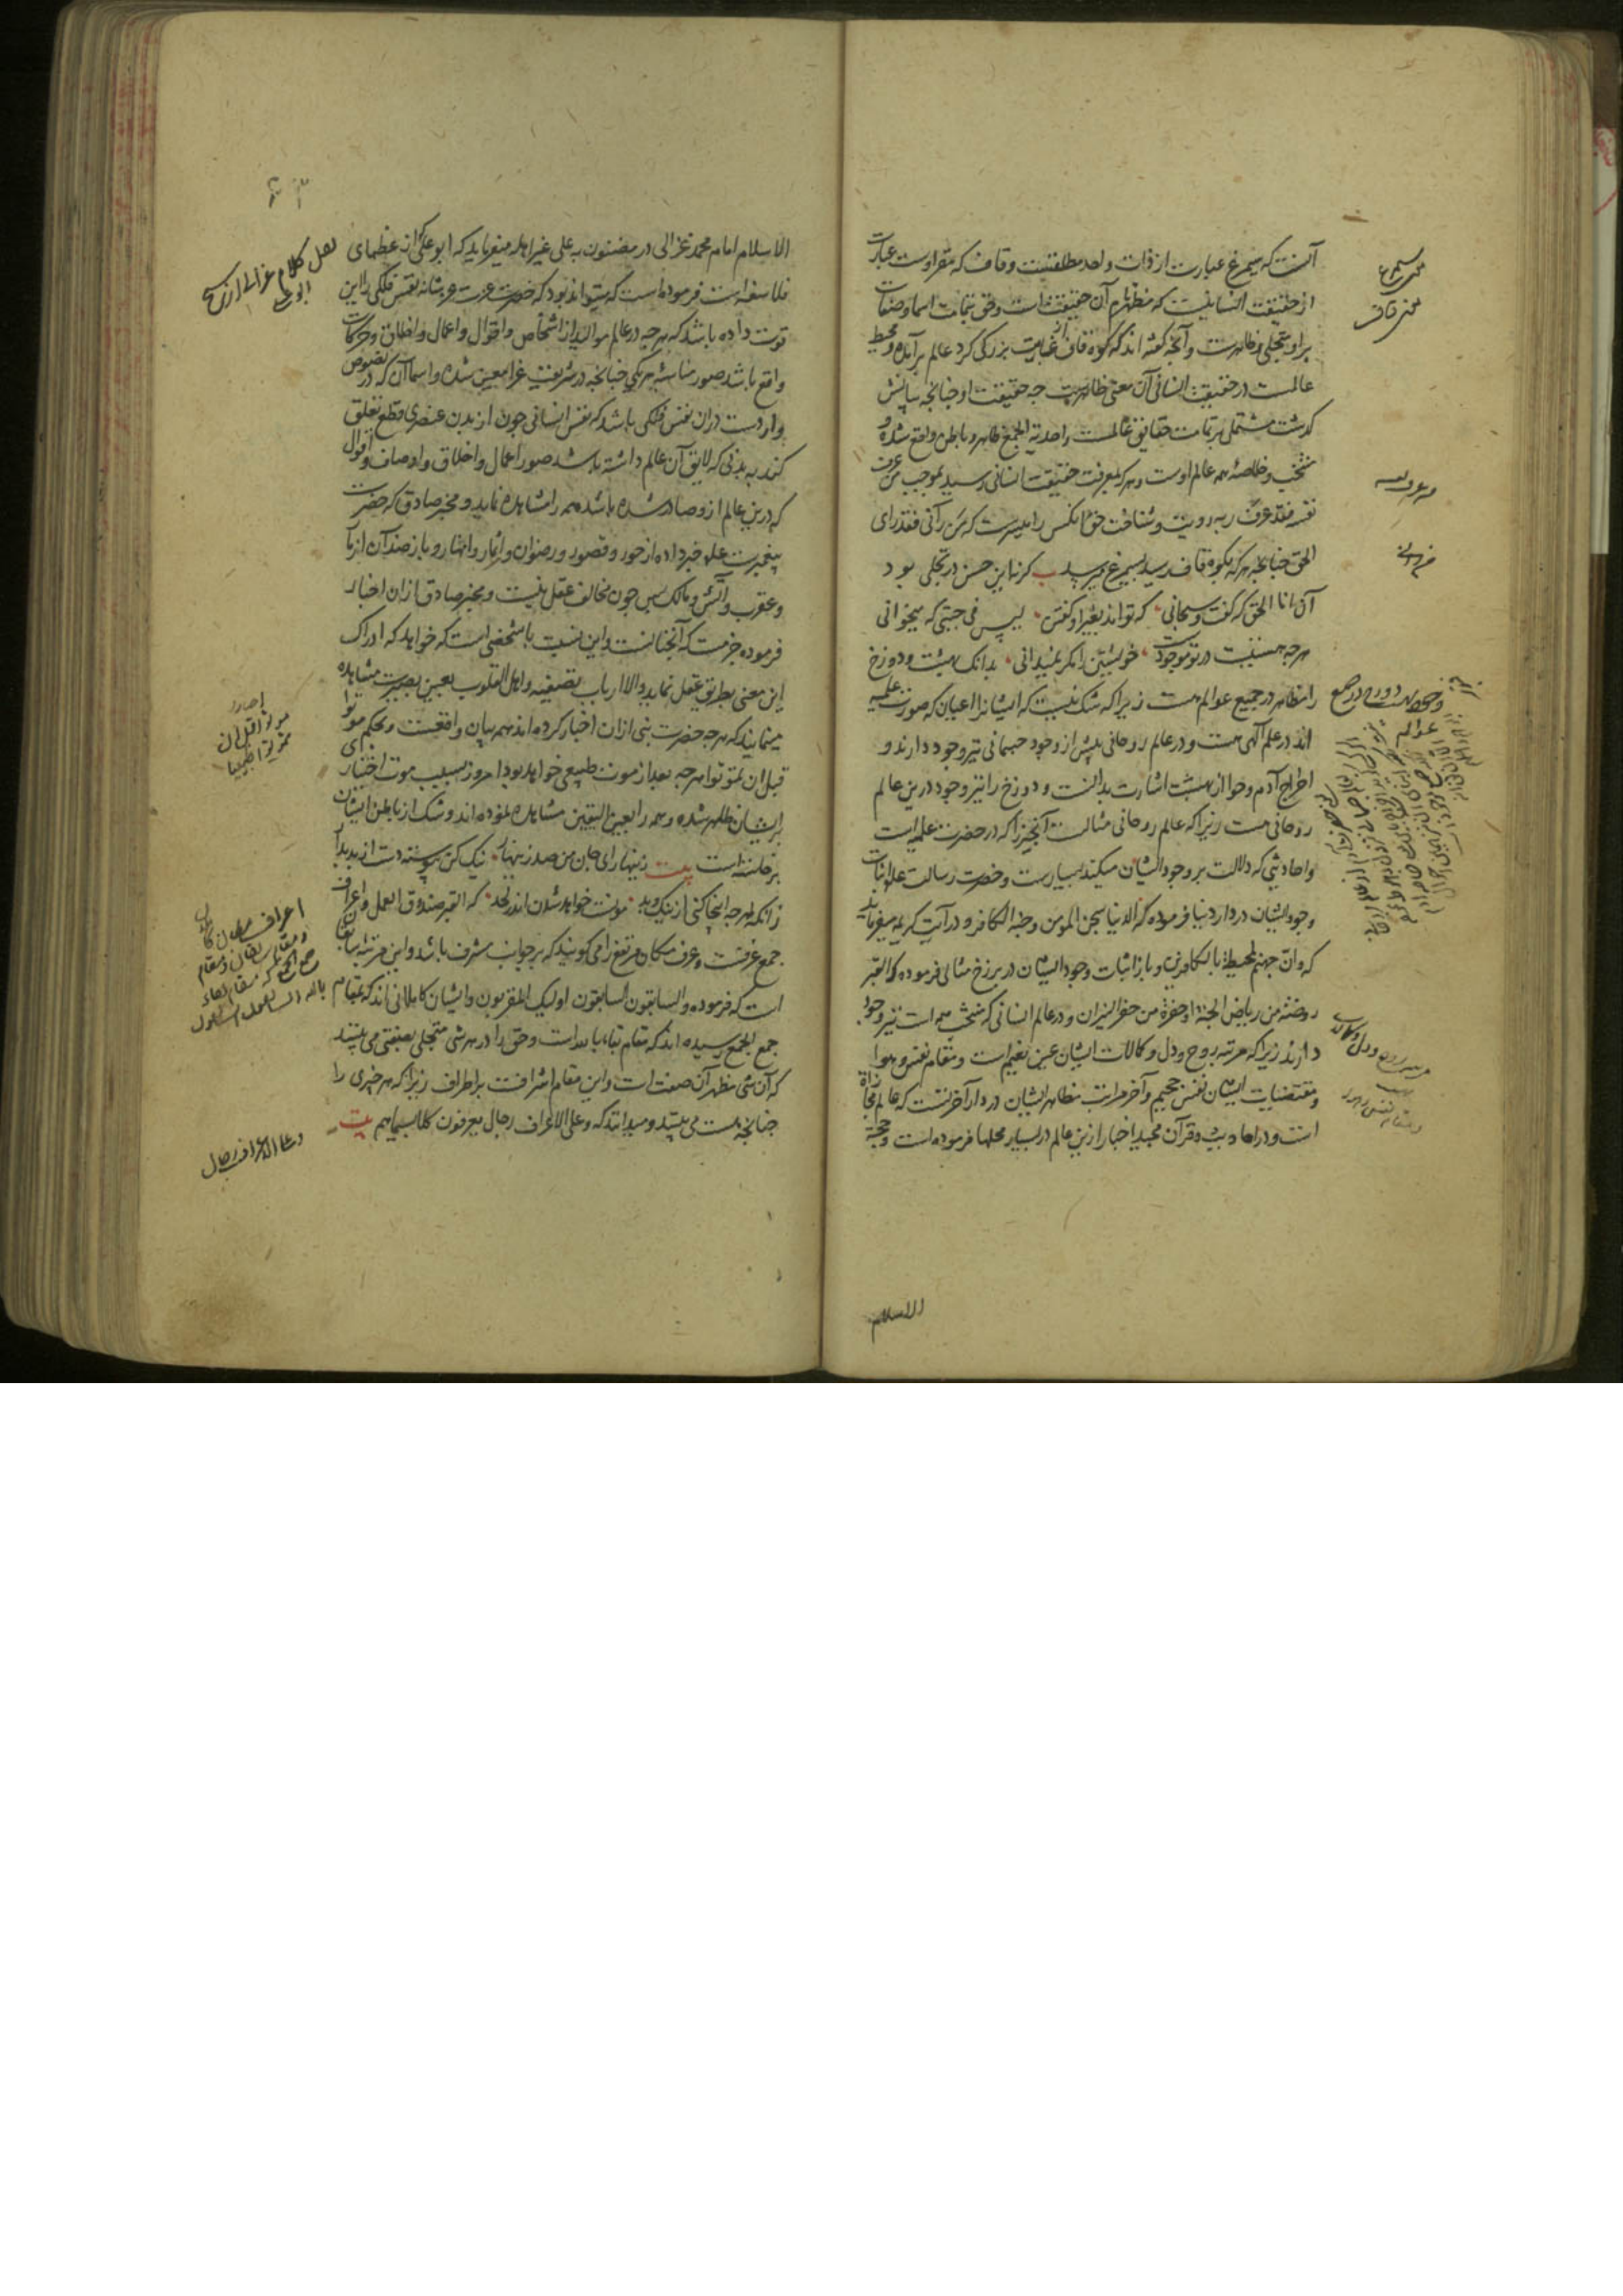 آنست که سیمرغ عبارت از ذات واحد مطلقست و قاف که مقر اوست عبارت
از حقیقت انسانیست که مظهر تام آن حقیقت است و حق بتمامت اسما و صفات
براو متجلی و ظاهرست و آنچه گفته اند که کوه قاف از غایت بزرگی گرد عالم برآمده و محیط
عالمست در حقیقت انسانی آن معنی ظاهرست چه حقیقت او چنانچه بیانش
گذشت مشتمل بر تمامت حقایق عالمست و احدیة الجمع ظاهر و باطن واقع شده و
منتخب و خلاصۀ همه عالم اوست و هرکه بمعرفت حقیقت انسانی رسید بموجب من عرف
نفسه فقد عرف ربه رویت و شناخت حق آنکس را میسرست که من رآنی فقد رای
الحق چنانچه هرکه بکوه قاف رسید بسیمرغ میرسد ب کر نه این حسن در تجلی بود
آن انا الحق که گفت و سبحانی که تواند بغیر او گفتن لیس فی جبتی که میخوانی
هرچه هستیست در تو موجودست خویشتن را مگر نمیدانی بدانک بهشت و دوزخ
را مظاهر در جمیع عوالم هست زیرا که شک نیست که ایشانرا اعیان که صورت علمیه
اند در علم الهی هست و در عالم روحانی پیش از وجود جسمانی نیز وجود دارند و
اخراج آدم و حوا از بهشت اشارت بدانست و دوزخ را نیز وجود درین عالم
روحانی هست زیرا که عالم روحانی مثالست آنچیز را که در حضرت علمیه است
و احادیثی که دلالت بر وجود ایشان میکند بسیارست و حضرت رسالت علم اثبات
وجود ایشان در دار دنیا فرموده که الدنیا سجن المومن و جنة الکافر و در آیت کریمه میفرماید
که و ان جهنم لمحیطة بالکافرین و باز اثبات وجود ایشان در برزخ مثالی فرموده که القبر
روضة من ریاض الجنة او حفرة من حفر النیران و در عالم انسانی که منتخب همه است نیز وجود
دارند زیرا که مرتبه روح و دل و کمالات ایشان عین نعیم است و مقام نفس و هوا
و مقتضیات ایشان نفس جحیم و آخر مراتب مظاهر ایشان در دار آخرتست که عالم مجازاة
است و در احادیث و قرآن مجید اخبار ازین عالم در بسیار محلها فرموده است و حجة
الاسلام
معنی سیمرغ
معنی قاف
من عرف نفسه
من رآنی
الاسلام امام محمد غزالی در مضنون به علی غیر اهله میفرماید که ابو علی که از عظمای
فلاسفه است فرموده است که میتواند بود که حضرت عزت عز شانه نفس فلکی را این
قوت داده باشد که هرچه در عالم موالید از اشخاص و اقوال و اعمال و اخلاق و حرکات
واقع باشد صور مناسبه هریکی چنانچه در شریعت غرا معین شده و اسما آن که در نصوص
واردست در آن نفس فلکی باشد که نفس انسانی چون از بدن عنصری قطع تعلق
کند به بدنی که لایق آن عالم داشته باشد صور اعمال و اخلاق و اوصاف و اقوال
که درین عالم ازو صادر شده باشد همه را مشاهده نماید و مخبر صادق که حضرت
پیغمبرست علم خبر داده از حور و قصور و رضوان و اثمار و انهار و باز ضد آن از مار
و عقرب و آتش و مالک پس چون مخالف عقل نیست و مخبر صادق از آن اخبار
فرموده جزمست که آنچنانست و این نسبت با شخصی است که خواهد که ادراک
این معنی بطریق عقل نماید و الا ارباب تصفیه و اهل القلوب بعین بصیرت مشاهده
مینمایند که هرچه حضرت نبی از آن اخبار کرده اند همه بیان واقعست و بحکم موتوا
قبل ان تموتوا هرچه بعد از موت طبیعی خواهد بود امروز بسبب موت اختیاری
بر ایشان ظاهر شده و همه را بعین الیقین مشاهده نموده اند و شک از باطن ایشان
برخاسته است بیت زینهار ای جان من صد زینهار نیک کن پیوسته دست از بد بدار
زانکه هرچه اینجا کنی از نیک و بد مونست خواهد شدن اندر لحد که القبر صندوق العمل و اعراف
جمع عرفست و عرف مکان مرتفع را می گویند که بر جوانب مشرف باشد و این مرتبه سابقان
است که فرموده و السابقون السابقون اولیک المقربون و ایشان کاملانی اند که بمقام
جمع الجمع رسیده اند که مقام بقاء بالله است و حق را در هر شی متجلی بصفتی می بینند
که آن شی مظهر آن صفت است و این مقام اشرافست بر اطراف زیرا که هر چیزی را
چنانچه هست می بینند و میدانند که و علی الاعراف رجال یعرفون کلا بسیماهم بیت
نقل کلام غزالی از شیخ
ابو علی
موتوا قبل ان
تموتوا
و علی الاعراف رجال